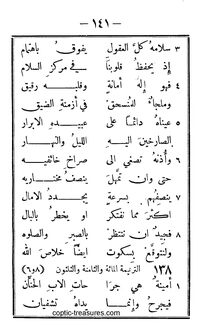 — ١٤١ —
٣ سلامه كل العقول يفوق باهتمام
إذ يحفظ قلوبنا في مركز السلام
٤ فهو إله أمانة وقلبه رقيق
وملجأ للمنسحق في أزمنة الضيق
٥ عيناه دائماً على عبيده الابرار
الصارخين اليه الليل والنهار
٦ وأذنه تصغى الى صراخ خائفيه
حتى وان تمهل ينصف مختاريه
٧ ينصفهم بسرعة يجدد الامال
اكثر مما نفتكر او يخطر بالبال
٨ فجيد ان ننتظر بالصبر والصلوه
ولنتوقع بسكوت ايضاً خلاص الله
١٣٨ الترنيمة المائة والثامنة والثلثون (٦٩٨)
١ أمينة هي جراحات الاب الحنان
فيجرح وإنما يداه تشفيان
coptic-treasures.com